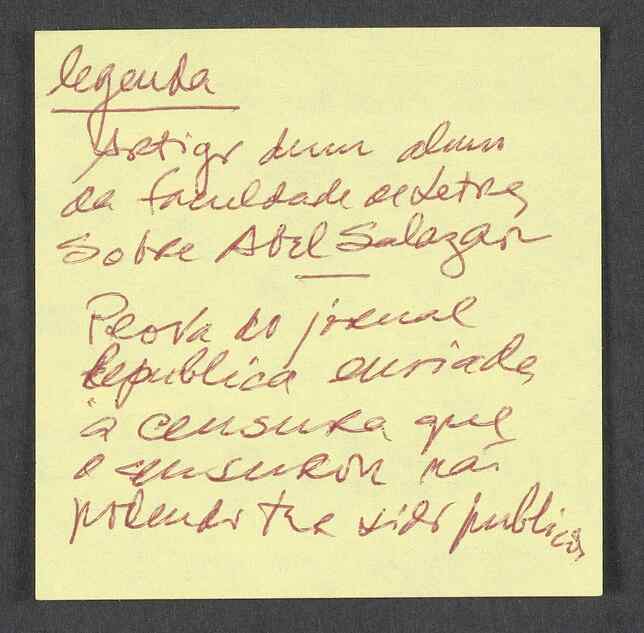 legenda
Artigo dum aluno
da faculdade de Letras
Sobre Abel Salazar
Prova do jornal
República enviada
à censura que
o censurou não
podendo ter sido publicado